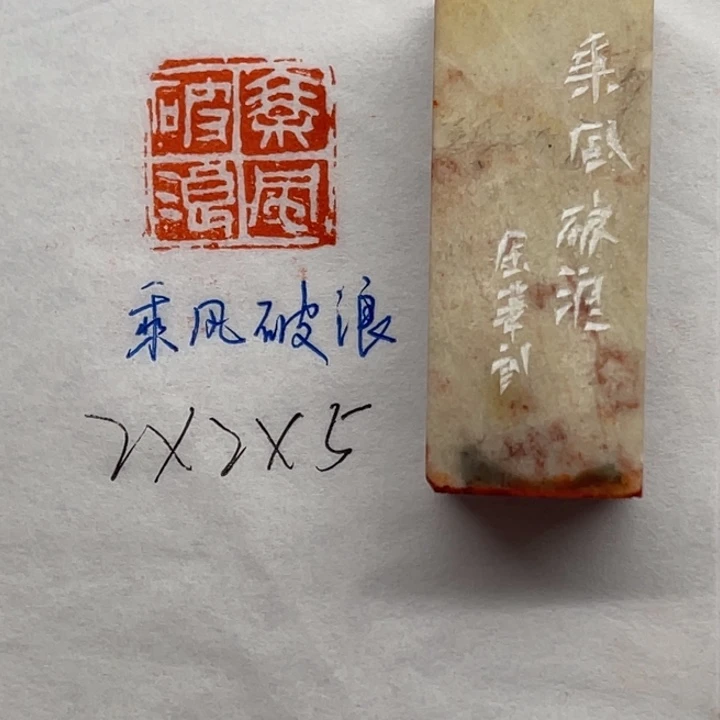 乘風
破浪
乘风破浪
2X2X5
乘風破浪